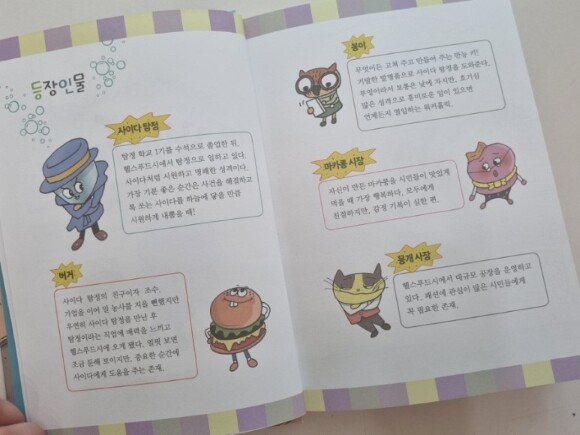 등장인물
사이다 탐정
탐정 학교 1기를 수석으로 졸업한 뒤,
헬스푸드시에서 탐정으로 일하고 있다.
사이다처럼 시원하고 명쾌한 성격이다.
가장 기분 좋은 순간은 사건을 해결하고
톡 쏘는 사이다를 하늘에 닿을 만큼
시원하게 내뿜을 때!
버거
사이다 탐정의 친구이자 조수.
가업을 이어 빵 농사를 지을 뻔했지만
우연히 사이다 탐정을 만난 후
탐정이라는 직업에 매력을 느끼고
헬스푸드시에 오게 됐다. 얼핏 보면
조금 둔해 보이지만, 중요한 순간에
사이다에게 도움을 주는 존재.
봉이
무엇이든 고쳐 주고 만들어 주는 만능 키!
기발한 발명품으로 사이다 탐정을 도와준다.
부엉이라서 보통은 낮에 자지만, 호기심
많은 성격으로 흥미로운 일이 있으면
언제든지 열일하는 워커홀릭.
마카롱 시장
자신이 만든 마카롱을 시민들이 맛있게
먹을 때 가장 행복하다. 모두에게
친절하지만, 감정 기복이 심한 편.
뭉개 사장
헬스푸드시에서 대규모 공장을 운영하고
있다. 패션에 관심이 많은 시민들에게
꼭 필요한 존재.